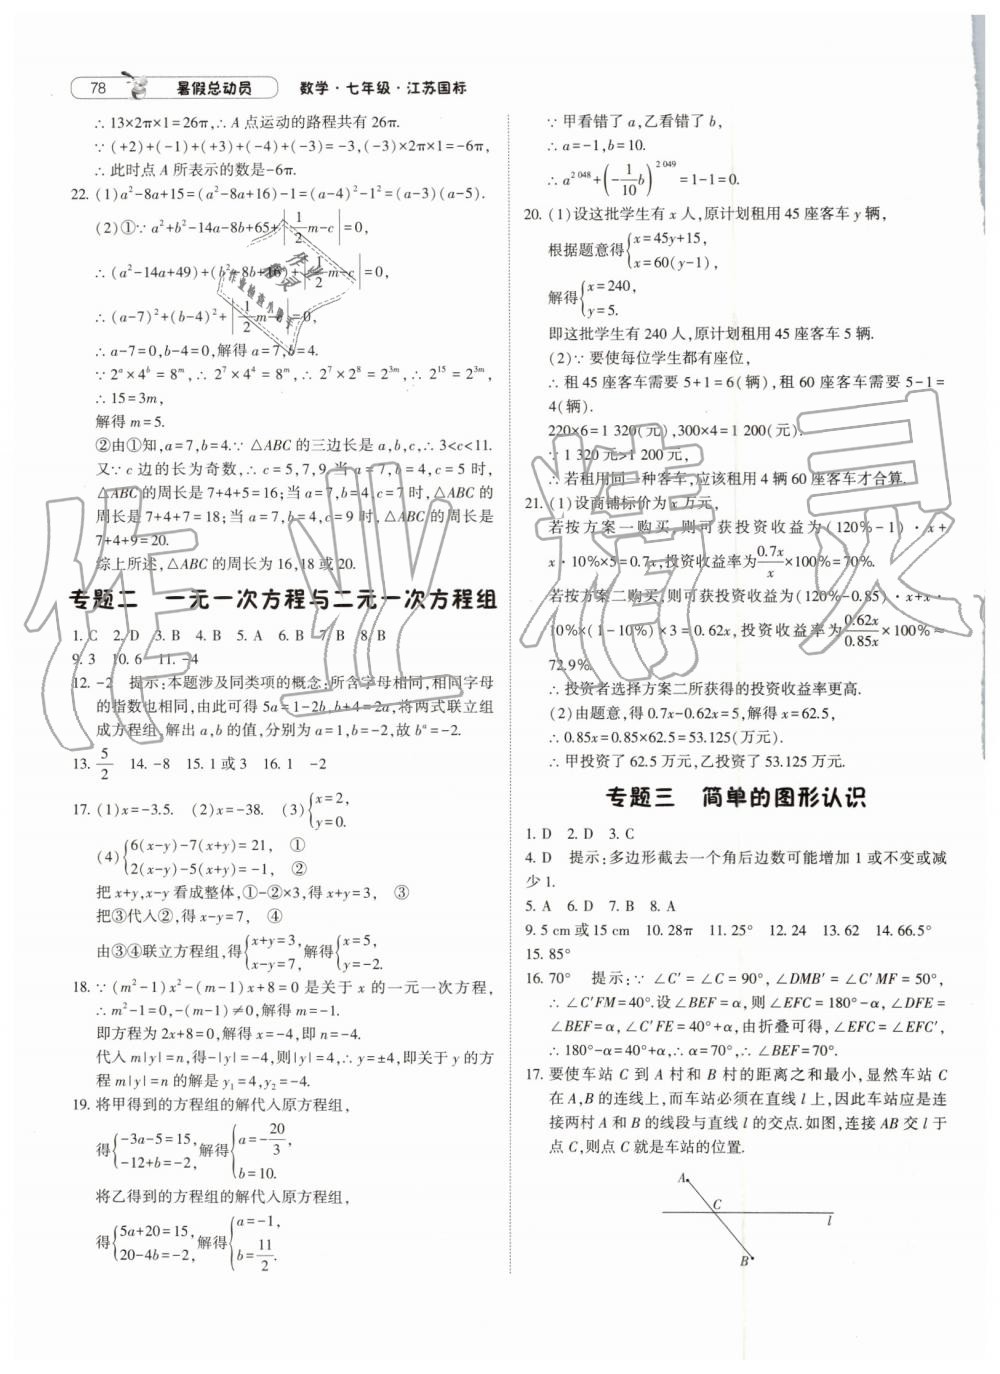 78 暑假总动员 数学·七年级·江苏国标
∴ 13×2π×1=26π,∴ A 点运动的路程共有 26π.
∵ (+2)+(-1)+(+3)+(-4)+(-3)=-3,(-3)×2π×1=-6π,
∴ 此时点 A 所表示的数是-6π.
22. (1)a²-8a+15=(a²-8a+16)-1=(a-4)²-1²=(a-3)(a-5).
(2)①∵ a²+b²-14a-8b+65+|1/2 m-c|=0,
∴ (a²-14a+49)+(b²-8b+16)+|1/2 m-c|=0,
∴ (a-7)²+(b-4)²+|1/2 m-c|=0,
∴ a-7=0,b-4=0,解得 a=7,b=4.
∵ 2^a×4^b=8^m,∴ 2^7×4^4=8^m,∴ 2^7×2^8=2^{3m},∴ 2^15=2^{3m},
∴ 15=3m,
解得 m=5.
②由①知,a=7,b=4.∵ △ABC 的三边长是 a,b,c,∴ 3<c<11.
又∵ c 边的长为奇数,∴ c=5,7,9.当 a=7,b=4,c=5 时,
△ABC 的周长是 7+4+5=16;当 a=7,b=4,c=7 时,△ABC
的周长是 7+4+7=18;当 a=7,b=4,c=9 时,△ABC 的周长是
7+4+9=20.
综上所述,△ABC 的周长为 16,18 或 20.
专题二 一元一次方程与二元一次方程组
1. C 2. D 3. B 4. B 5. A 6. B 7. B 8. B
9. 3 10. 6 11. -4
12. -2 提示:本题涉及同类项的概念:所含字母相同,相同字母
的指数也相同,由此可得 5a=1-2b,b+4=2a,将两式联立组
成方程组,解出 a,b 的值,分别为 a=1,b=-2,故 b^a=-2.
13. 5/2 14. -8 15. 1 或 3 16. 1 -2
17. (1)x=-3.5. (2)x=-38. (3){x=2, y=0.
(4){6(x-y)-7(x+y)=21, ①
2(x-y)-5(x+y)=-1, ②
把 x+y,x-y 看成整体,①-②×3,得 x+y=3, ③
把③代入②,得 x-y=7, ④
由③④联立方程组,得{x+y=3, x-y=7,解得{x=5, y=-2.
18. ∵ (m²-1)x²-(m-1)x+8=0 是关于 x 的一元一次方程,
∴ m²-1=0,-(m-1)≠0,解得 m=-1.
即方程为 2x+8=0,解得 x=-4,即 n=-4.
代入 m|y|=n,得-|y|=-4,则|y|=4,∴ y=±4,即关于 y 的方
程 m|y|=n 的解是 y₁=4,y₂=-4.
19. 将甲得到的方程组的解代入原方程组,
得{-3a-5=15, -12+b=-2,解得{a=-20/3, b=10.
将乙得到的方程组的解代入原方程组,
得{5a+20=15, 20-4b=-2,解得{a=-1, b=11/2.
∵ 甲看错了 a,乙看错了 b,
∴ a=-1,b=10.
∴ a^{2 048}+(-1/10 b)^{2 049}=1-1=0.
20. (1)设这批学生有 x 人,原计划租用 45 座客车 y 辆,
根据题意得{x=45y+15, x=60(y-1),
解得{x=240, y=5.
即这批学生有 240 人,原计划租用 45 座客车 5 辆.
(2)∵ 要使每位学生都有座位,
∴ 租 45 座客车需要 5+1=6(辆),租 60 座客车需要 5-1=
4(辆).
220×6=1 320(元),300×4=1 200(元).
∵ 1 320 元>1 200 元,
∴ 若租用同一种客车,应该租用 4 辆 60 座客车才合算.
21. (1)设商铺标价为 x 万元,
若按方案一购买,则可获投资收益为(120%-1)·x+
x·10%×5=0.7x,投资收益率为0.7x/x×100%=70%.
若按方案二购买,则可获投资收益为(120%-0.85)·x+x·
10%×(1-10%)×3=0.62x,投资收益率为0.62x/0.85x×100%≈
72.9%.
∴ 投资者选择方案二所获得的投资收益率更高.
(2)由题意,得 0.7x-0.62x=5,解得 x=62.5,
∴ 0.85x=0.85×62.5=53.125(万元).
∴ 甲投资了 62.5 万元,乙投资了 53.125 万元.
专题三 简单的图形认识
1. D 2. D 3. C
4. D 提示:多边形截去一个角后边数可能增加 1 或不变或减
少 1.
5. A 6. D 7. B 8. A
9. 5 cm 或 15 cm 10. 28π 11. 25° 12. 24 13. 62 14. 66.5°
15. 85°
16. 70° 提示:∵ ∠C′=∠C=90°,∠DMB′=∠C′MF=50°,
∴ ∠C′FM=40°.设∠BEF=α,则∠EFC=180°-α,∠DFE=
∠BEF=α,∠C′FE=40°+α,由折叠可得,∠EFC=∠EFC′,
∴ 180°-α=40°+α,∴ α=70°,∴ ∠BEF=70°.
17. 要使车站 C 到 A 村和 B 村的距离之和最小,显然车站 C
在 A,B 的连线上,而车站必须在直线 l 上,因此车站应是连
接两村 A 和 B 的线段与直线 l 的交点.如图,连接 AB 交 l 于
点 C,则点 C 就是车站的位置.
A
C
l
B
作业精灵
作业检查小助手